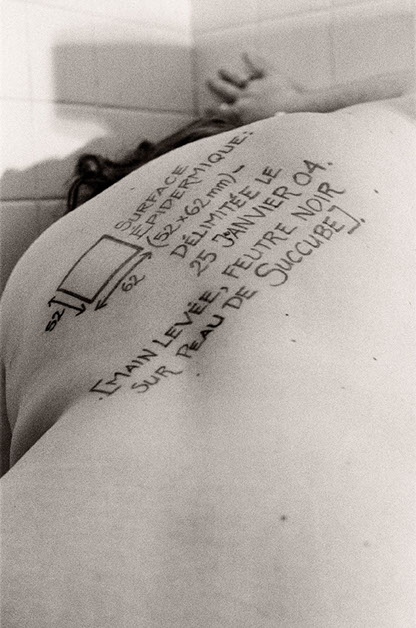 SURFACE
ÉPIDERMIQUE:
(52 x 62 mm) –
DÉLIMITÉE LE
25 JANVIER 04.
[MAIN LEVÉE, FEUTRE NOIR
SUR PEAU DE SUCCUBE].
52
62